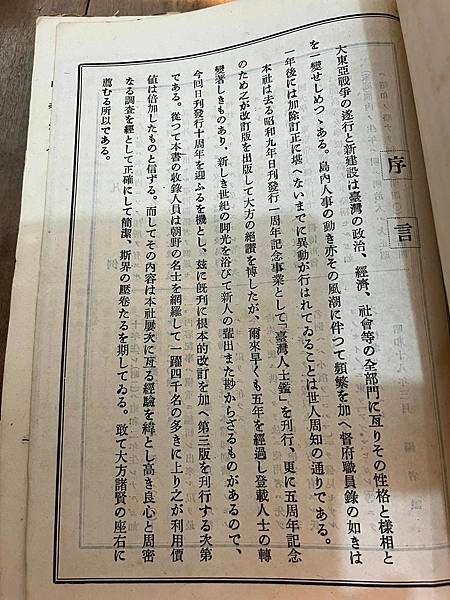 序言
大東亞戰爭の遂行と新建設は臺灣の政治、經濟、社會等の全部門に亙りその性格と樣相と
を一變せしめつゝある。島內人事の動き亦その風潮に伴つて頻繁を加へ督府職員錄の如きは
一年後には加除訂正に堪へないまでに異動が行はれてゐることは世人周知の通りである。
本社は去る昭和九年日刊發行一周年記念事業として「臺灣人士鑑」を刊行、更に五周年記念
のため之が改訂版を出版して大方の絕讚を博したが、爾來早くも五年を經過し登載人士の轉
變著しきものあり、新しき世紀の脚光を浴びて新人の輩出また尠からざるものがあるので、
今回日刊發行十周年を迎ふるを機とし、玆に旣刊に根本的改訂を加へ第三版を刊行する次第
である。從つて本書の收錄人員は朝野の名士を網羅して一躍四千名の多きに上り之が利用價
値は倍加したものと信ずる。而してその內容は本社屢次に亙る經驗を緯とし高き良心と周密
なる調査を經として正確にして簡潔、斯界の壓卷たるを期してゐる。敢て大方諸賢の座右に
薦むる所以である。